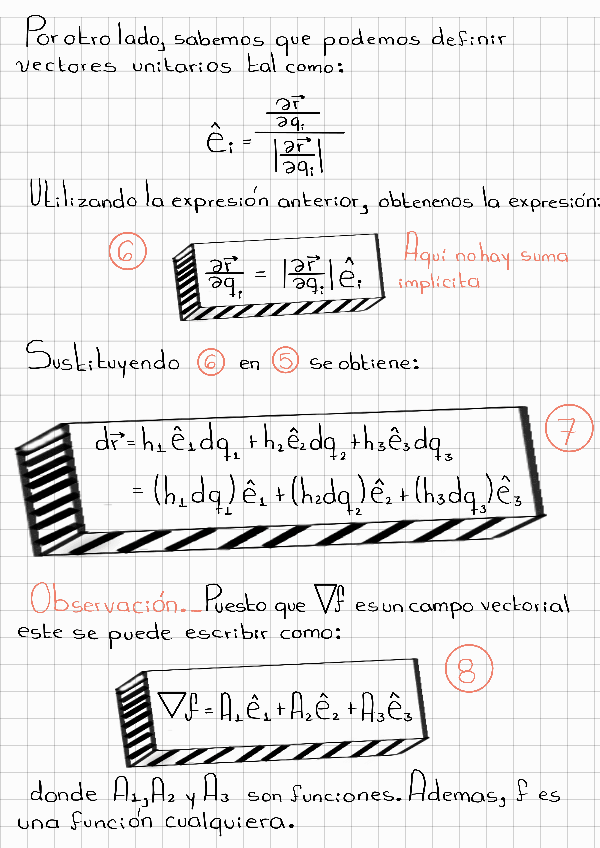 Por otro lado, sabemos que podemos definir
vectores unitarios tal como:
ê_i = (∂r⃗/∂q_i) / |∂r⃗/∂q_i|
Utilizando la expresión anterior, obtenenos la expresión:
⑥ ∂r⃗/∂q_i = |∂r⃗/∂q_i| ê_i Aquí no hay suma
implícita
Sustituyendo ⑥ en ⑤ se obtiene:
dr⃗ = h₁ê₁dq₁ + h₂ê₂dq₂ + h₃ê₃dq₃ ⑦
= (h₁dq₁)ê₁ + (h₂dq₂)ê₂ + (h₃dq₃)ê₃
Observación._ Puesto que ∇f es un campo vectorial
este se puede escribir como:
∇f = A₁ê₁ + A₂ê₂ + A₃ê₃ ⑧
donde A₁, A₂ y A₃ son funciones. Ademas, f es
una función cualquiera.